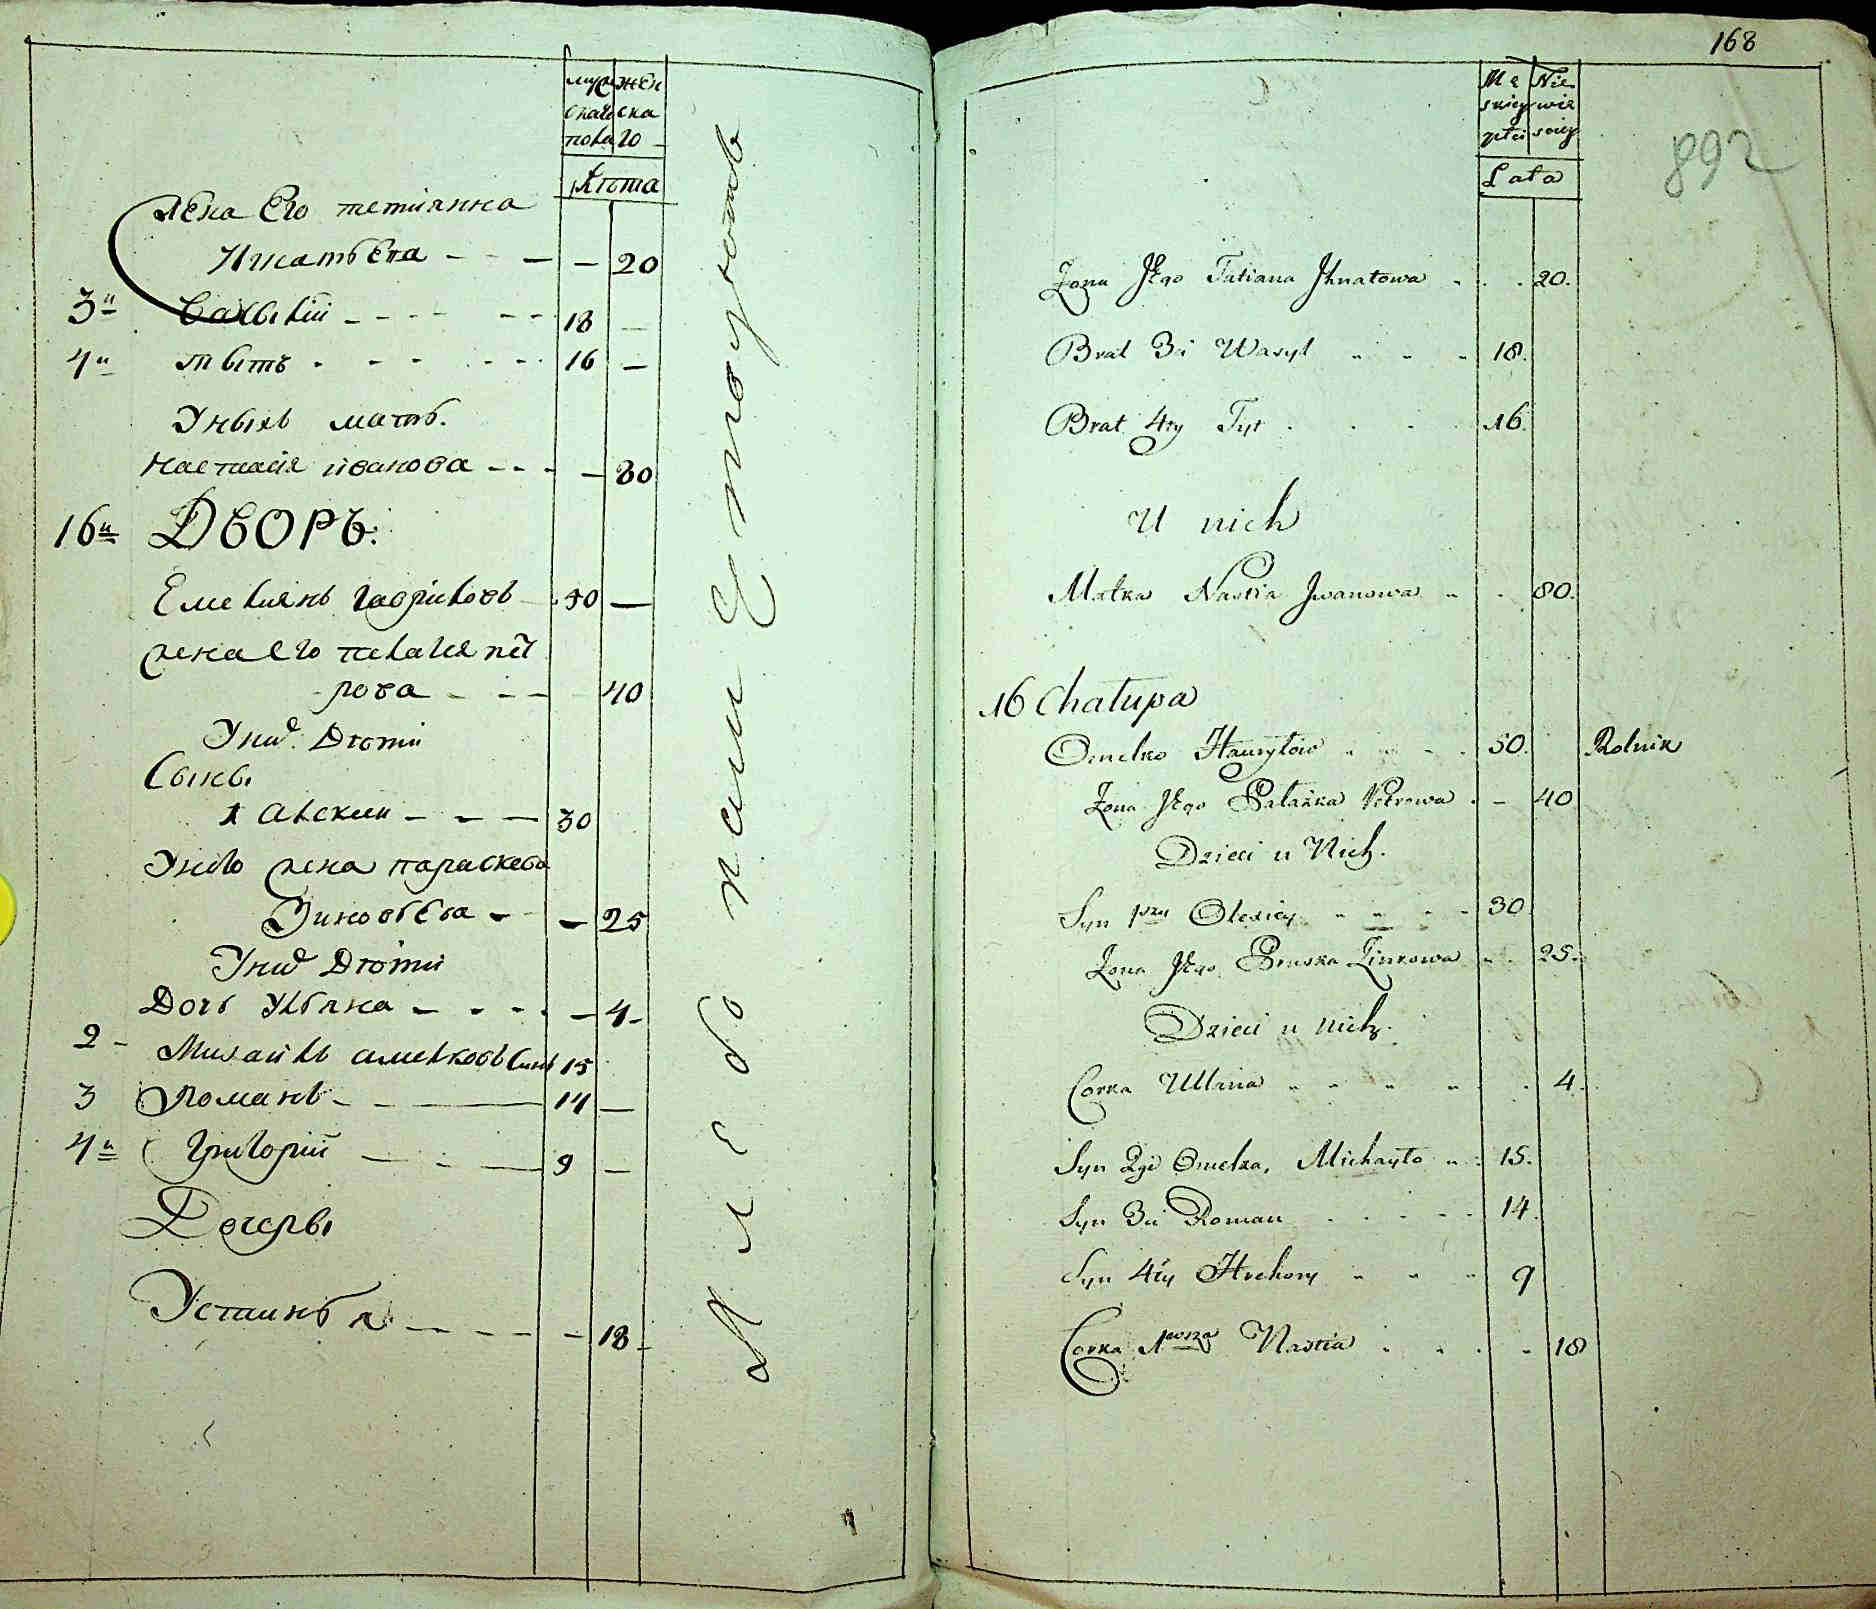 муж жен
скаго ска
пола го
Лѣта
жена Его тетиянна
Игнатьева - - - 20
3й Василий - - - - 18 -
4й титъ - - - - 16 -
У ных мать
настасия иванова - - - 80
16й Дворъ:
Емелиянъ гавриловъ 50 -
жена его палагея пет
рова - - - 40
У ных Дѣти
Сыны
1 алексий - - - 30
У него жена параскева
Зиновьева - - 25
У ных Дѣти
Дочь Ульяна - - - - 4
2 - Михайлъ амелковъ Сынъ 15
3 Романъ - - 14 -
4й Григорий - - - 9 -
Дочеры
Устинья - - - - 18
Хлебопашествуютъ
168
892
Mę Nie
skiey wie
płci sciey
Lata
Zona Jego Tatiana Ihnatowa - . . 20.
Brat 3ci Wasyl - - - 18.
Brat 4ty Tyt . . . 16.
U nich
Matka Nastia Iwanowa - - 80.
16 Chałupa
Omelko Hauryłow - - - - 50. Rolnik
Zona Jego Pałażka Petrowa . - 40
Dzieci u Nich.
Syn 1szy Olexiey - - - - 30
Zona Jego Pruska Zinkowa - . 25.
Dzieci u nich.
Corka Ullana - - - - - . 4.
Syn 2gi Omelka, Michayło - . 15.
Syn 3ci Roman . . - - - 14.
Syn 4ty Hrehory - - - 9
Corka 1wsza Nastia . . . - 18